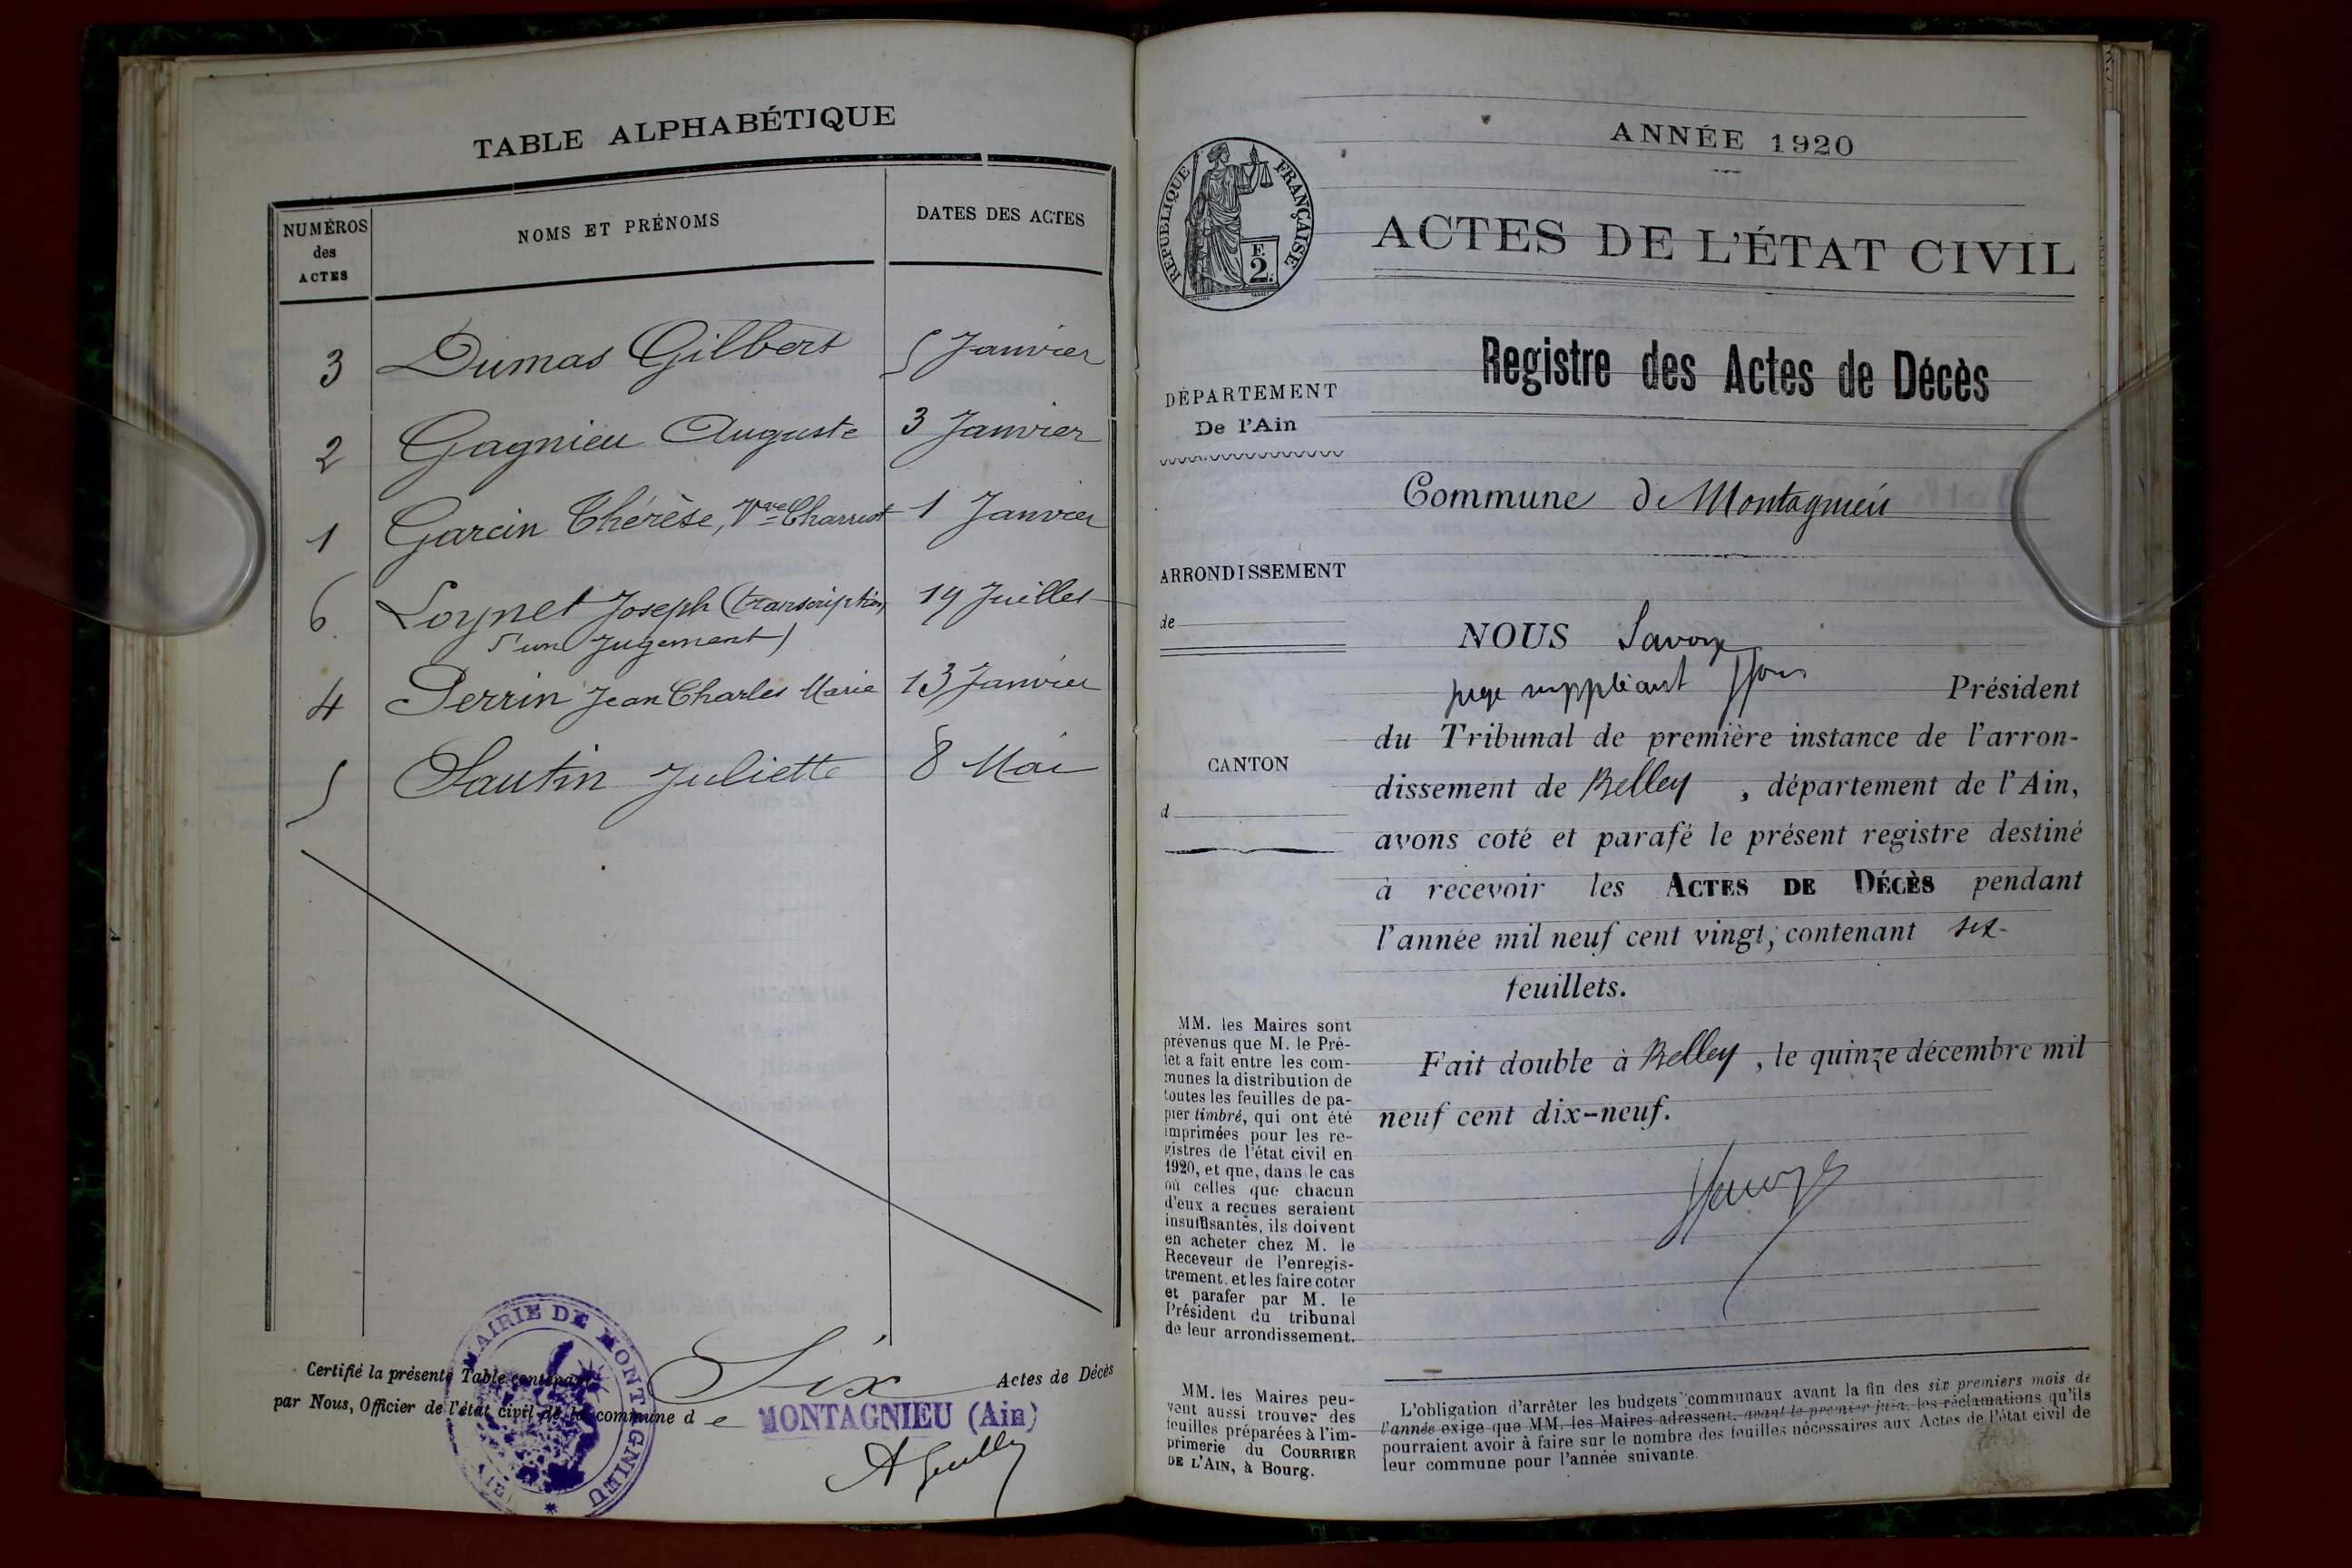 TABLE ALPHABÉTIQUE
NUMÉROS
des
ACTES
NOMS ET PRÉNOMS
DATES DES ACTES
3 Dumas Gilbert 5 Janvier
2 Gagnieu Auguste 3 Janvier
1 Garcin Thérèse, Vve Charriot 1 Janvier
6 Loynet Joseph (transcription 19 Juillet
d'un Jugement)
4 Perrin Jean Charles Marie 13 Janvier
5 Sautin Juliette 8 Mai
Certifié la présente Table contenant Six Actes de Décès
par Nous, Officier de l'état civil de la commune de MONTAGNIEU (Ain)
MAIRIE DE MONTAGNIEU
ANNÉE 1920
RÉPUBLIQUE FRANÇAISE
E
2.
ACTES DE L'ÉTAT CIVIL
Registre des Actes de Décès
DÉPARTEMENT
De l'Ain
Commune de Montagnieu
ARRONDISSEMENT
de
CANTON
d
NOUS Savoye
juge suppléant Président
du Tribunal de première instance de l'arron-
dissement de Belley , département de l'Ain,
avons coté et parafé le présent registre destiné
à recevoir les ACTES DE DÉCÈS pendant
l'année mil neuf cent vingt, contenant six
feuillets.
Fait double à Belley , le quinze décembre mil
neuf cent dix-neuf.
MM. les Maires sont
prévenus que M. le Pré-
fet a fait entre les com-
munes la distribution de
toutes les feuilles de pa-
pier timbré, qui ont été
imprimées pour les re-
gistres de l'état civil en
1920, et que, dans le cas
où celles que chacun
d'eux a reçues seraient
insuffisantes, ils doivent
en acheter chez M. le
Receveur de l'enregis-
trement, et les faire coter
et parafer par M. le
Président du tribunal
de leur arrondissement.
MM. les Maires peu-
vent aussi trouver des
feuilles préparées à l'im-
primerie du COURRIER
DE L'AIN, à Bourg.
L'obligation d'arrêter les budgets communaux avant la fin des six premiers mois de
l'année exige que MM. les Maires adressent, avant le premier juin, les réclamations qu'ils
pourraient avoir à faire sur le nombre des feuilles nécessaires aux Actes de l'état civil de
leur commune pour l'année suivante.